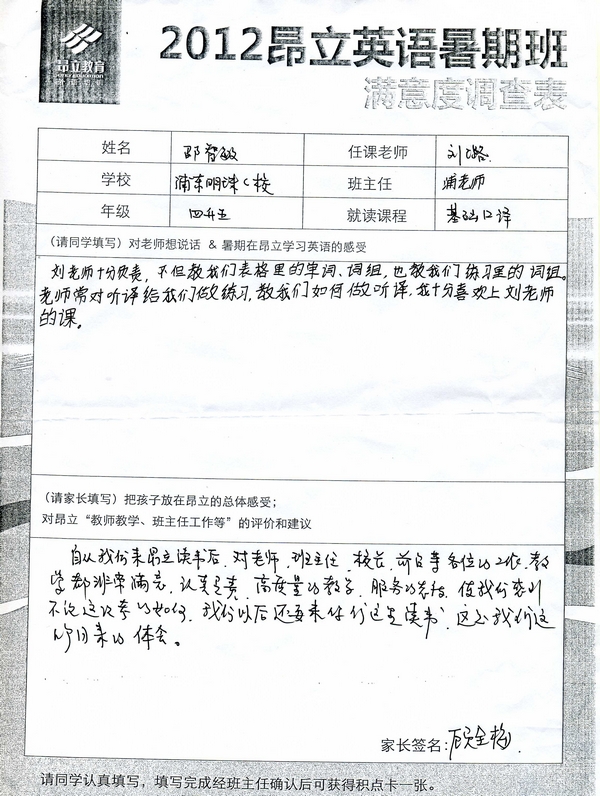 昂立教育
2012昂立英语暑期班
满意度调查表
姓名 邵智敏 任课老师 刘璐
学校 浦东明珠小校 班主任 浦老师
年级 四升五 就读课程 基础口译
(请同学填写)对老师想说话 & 暑期在昂立学习英语的感受
刘老师十分负责,不但教我们表格里的单词、词组,也教我们练习里的词组。
老师常对听译给我们做练习,教我们如何做听译,我十分喜欢上刘老师
的课。
(请家长填写)把孩子放在昂立的总体感受;
对昂立“教师教学、班主任工作等”的评价和建议
自从我们来昂立读书后,对老师、班主任、校长、前台等各位的工作、教
学都非常满意,认真负责,高质量的教学,服务的
不论这次考的如何,我们以后还要来你们这里读书,这是我们这
的体会。
家长签名:
请同学认真填写,填写完成经班主任确认后可获得积点卡一张。